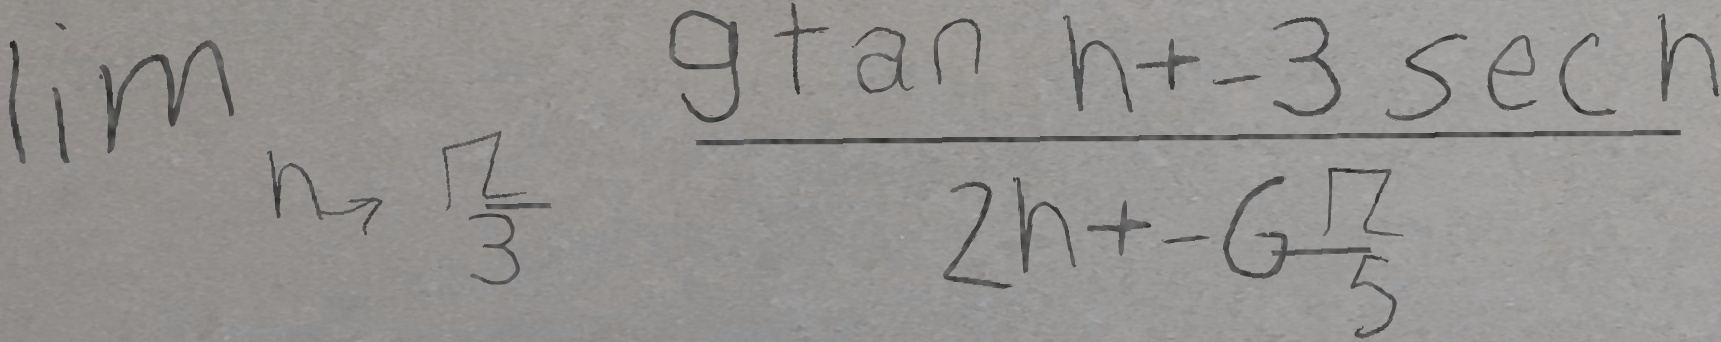 lim h→ π/3 (9 tan h + -3 sec h)/(2h + -6 π/5)